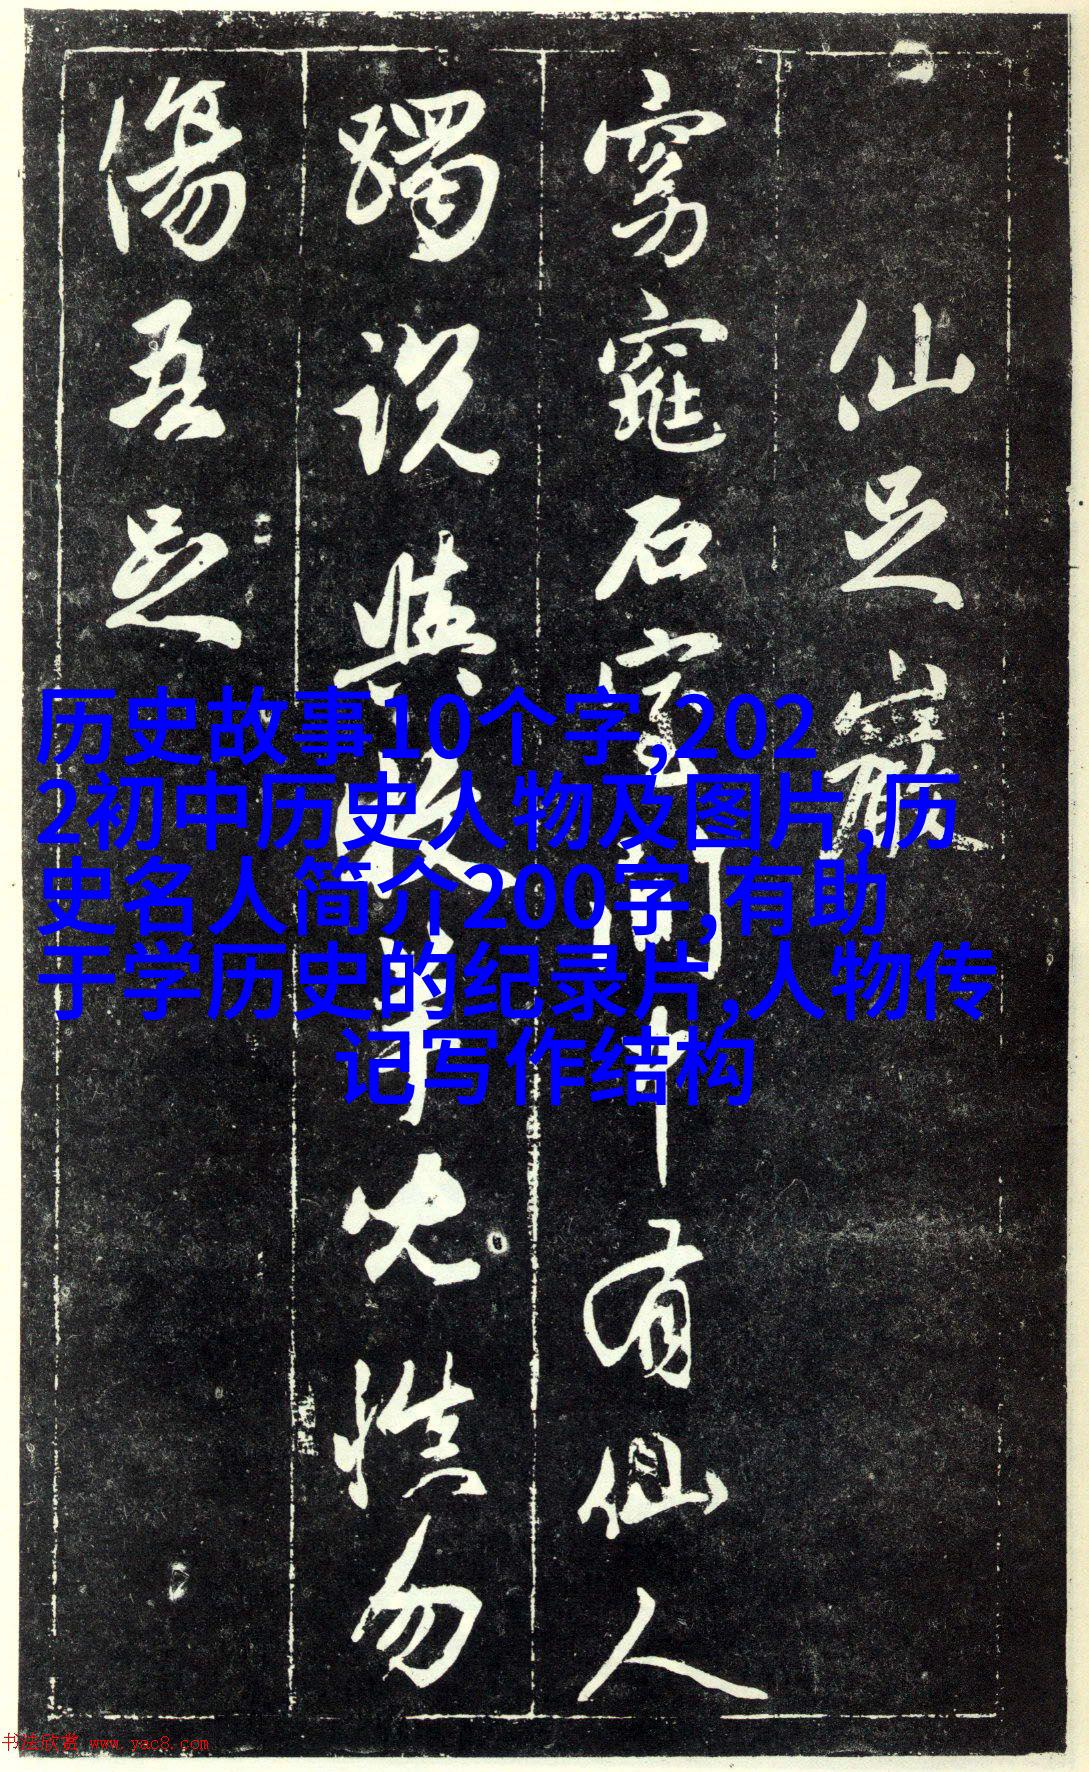 仙足巖
窈窕石室間中有仙人
躅説與牧羊兒慎勿
傷吾足
历史故事10个字,202
2初中历史人物及图片,历
史名人简介200字,有助
于学历史的纪录片,人物传
记写作结构
书法欣赏 www.yac8.com